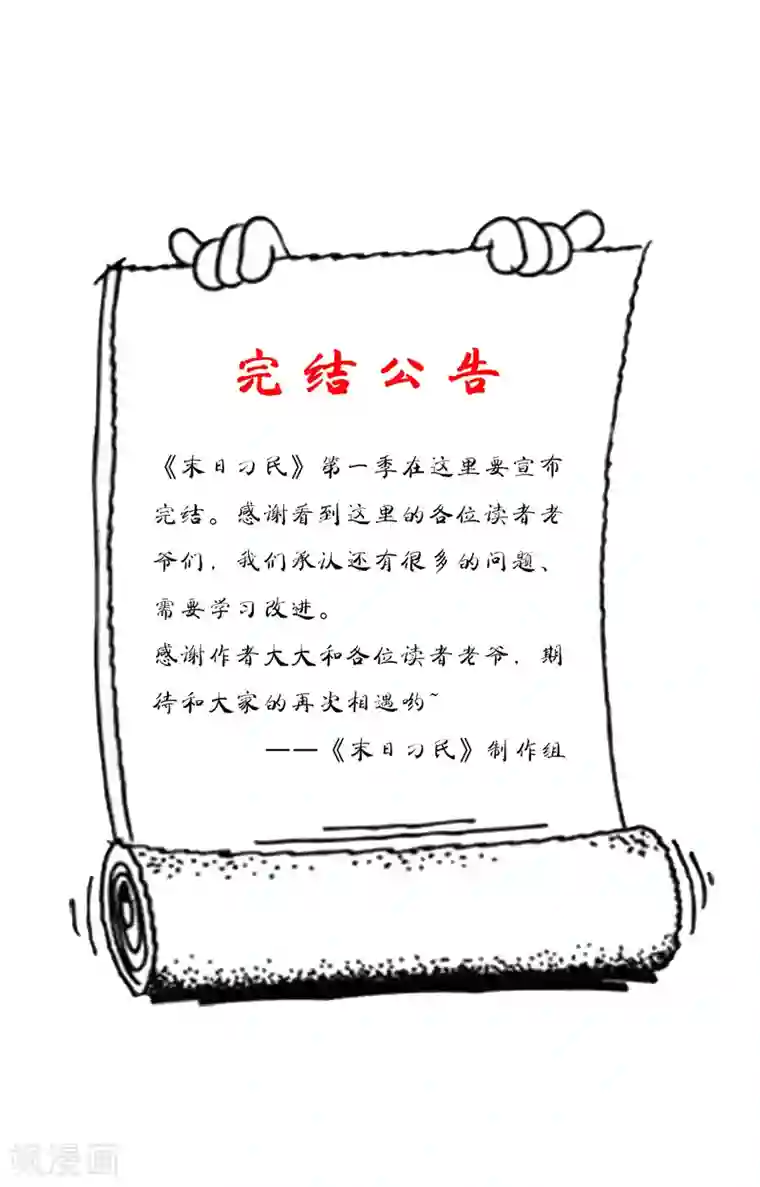 完结公告
《末日刁民》第一季在这里要宣布
完结。感谢看到这里的各位读者老
爷们，我们承认还有很多的问题、
需要学习改进。
感谢作者大大和各位读者老爷，期
待和大家的再次相遇哟~
——《末日刁民》制作组
飒漫画